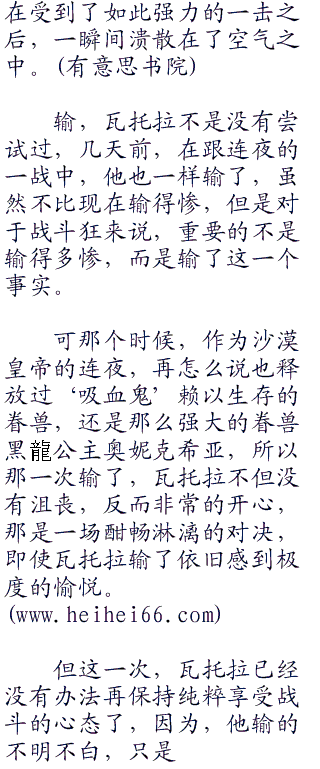 在受到了如此强力的一击之
后，一瞬间溃散在了空气之
中。(有意思书院)
输，瓦托拉不是没有尝
试过，几天前，在跟连夜的
一战中，他也一样输了，虽
然不比现在输得惨，但是对
于战斗狂来说，重要的不是
输得多惨，而是输了这一个
事实。
可那个时候，作为沙漠
皇帝的连夜，再怎么说也释
放过‘吸血鬼’赖以生存的
眷兽，还是那么强大的眷兽
黑龍公主奥妮克希亚，所以
那一次输了，瓦托拉不但没
有沮丧，反而非常的开心，
那是一场酣畅淋漓的对决，
即使瓦托拉输了依旧感到极
度的愉悦。
(www.heihei66.com)
但这一次，瓦托拉已经
没有办法再保持纯粹享受战
斗的心态了，因为，他输的
不明不白，只是